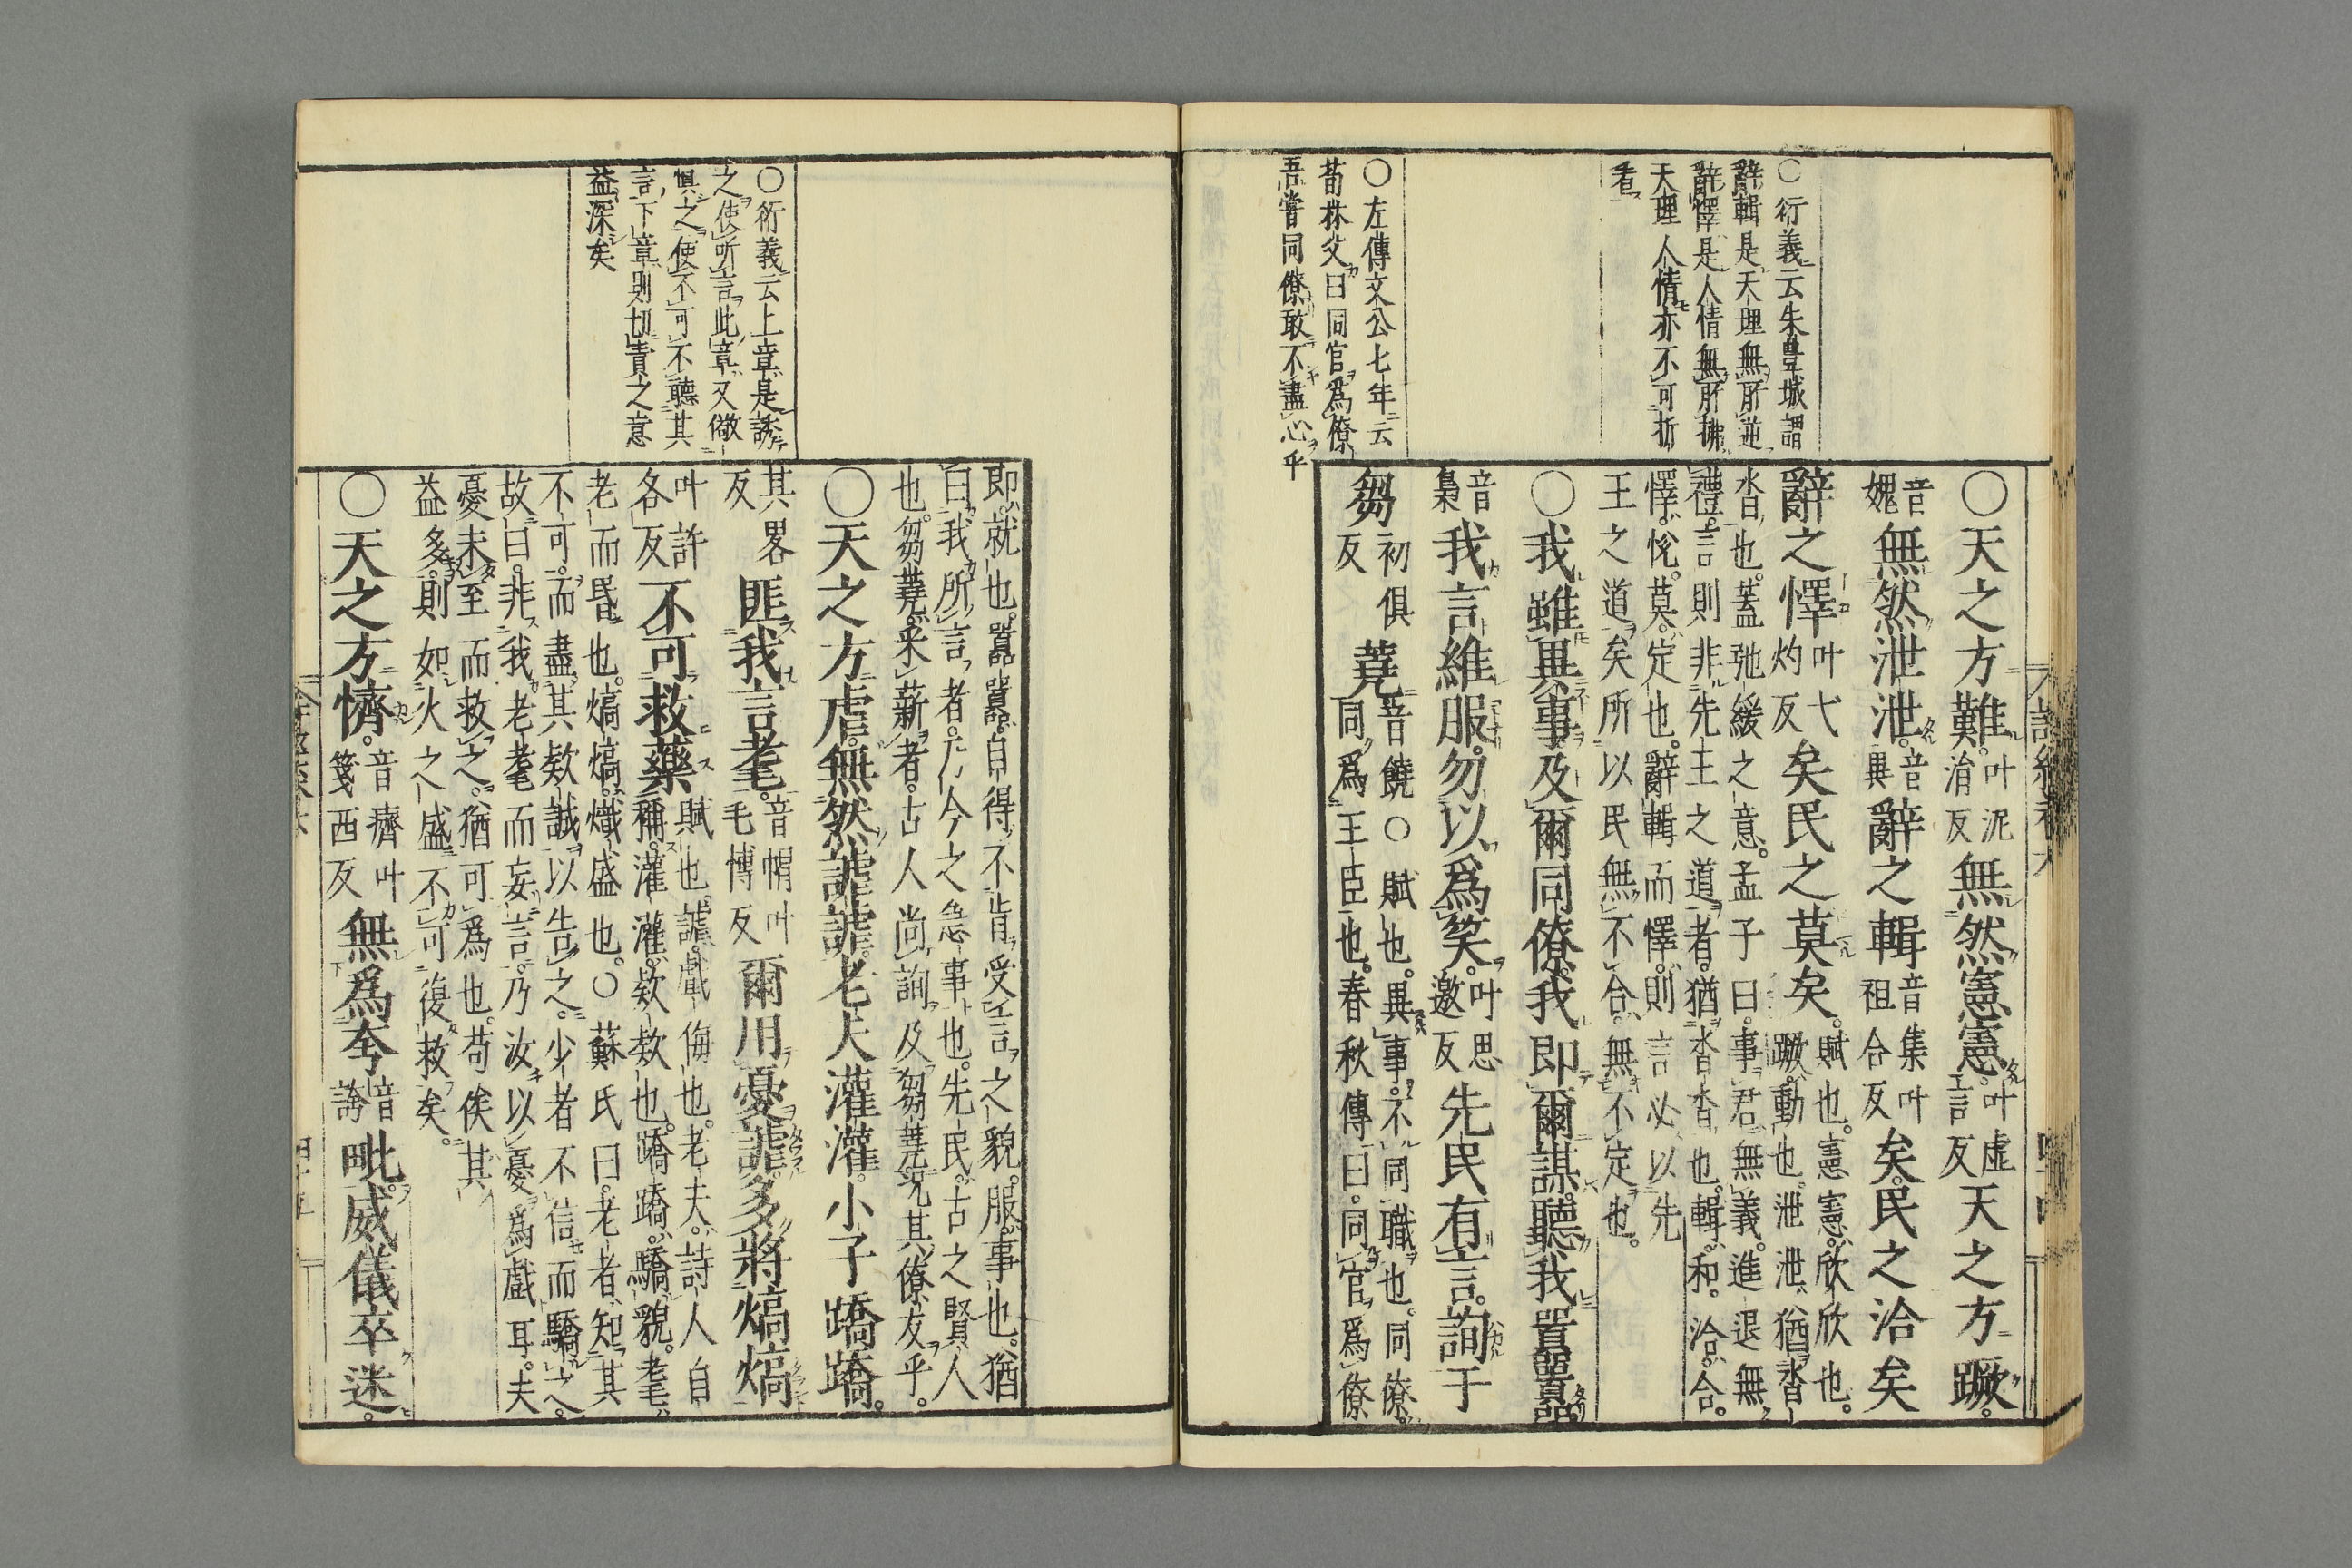 ○衍義云朱豊城謂
辭輯是天理無所逆
辭懌是人情無所拂
天理人情亦不可折
看
○左傳文公七年云
荀林父曰同官爲僚
吾嘗同僚敢不盡心乎
○天之方難叶泥涓反無然憲憲叶虛言反天之方蹶
音媿無然泄泄音異辭之輯音集叶祖合反矣民之洽矣
辭之懌叶弋灼反矣民之莫矣賦也憲憲欣欣也蹶動也泄泄猶沓
沓也蓋弛緩之意孟子曰事君無義進退無
禮言則非先王之道者猶沓沓也輯和洽合
懌悅莫定也辭輯而懌則言必以先
王之道矣所以民無不合無不定也
○我雖異事及爾同僚我即爾謀聽我囂囂
音梟我言維服勿以爲笑叶思邀反先民有言詢于
芻初俱反蕘音饒○賦也異事不同職也同僚同爲王臣也春秋傳曰同官爲僚
即就也囂囂自得不肯受言之貌服事也猶
曰我所言者乃今之急事也先民古之賢人
也芻蕘采薪者古人尚詢及芻蕘況其僚友乎
○天之方虐無然謔謔老夫灌灌小子蹻蹻
其畧反匪我言耄音帽叶毛博反爾用憂謔多將熇熇
叶許各反不可救藥賦也謔戲侮也老夫詩人自稱灌灌欵欵也蹻蹻驕貌耄
老而昏也熇熇熾盛也○蘇氏曰老者知其
不可而盡其欵誠以告之少者不信而驕之
故曰非我老耄而妄言乃汝以憂爲戲耳夫
憂未至而救之猶可爲也苟俟其
益多則如火之盛不可復救矣
○天之方懠音癠叶箋西反無爲夸音誇毗威儀卒迷
○衍義云上章是誘
之使听言此章又儆
惧之使不可不聽其
言下章則切責之意
益深矣